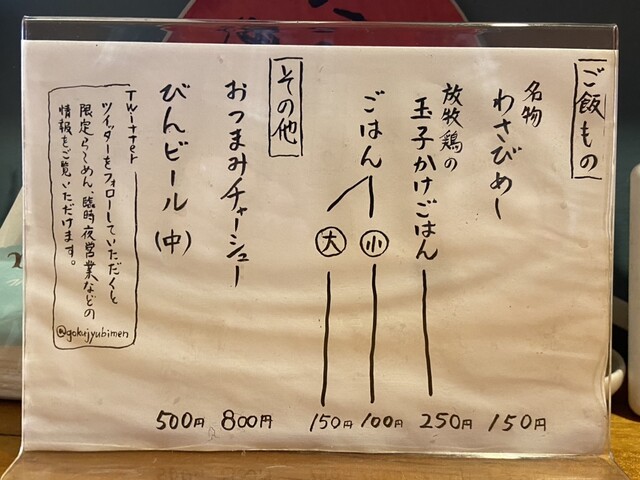 ご飯もの
名物
わさびめし 150円
放牧鶏の
玉子かけごはん 250円
ごはん
小 100円
大 150円
その他
おつまみチャーシュー 800円
びんビール(中) 500円
Twitter
ツイッターをフォローしていただくと
限定らーめん、臨時夜営業などの
情報をご覧いただけます。
@gokujyubimen